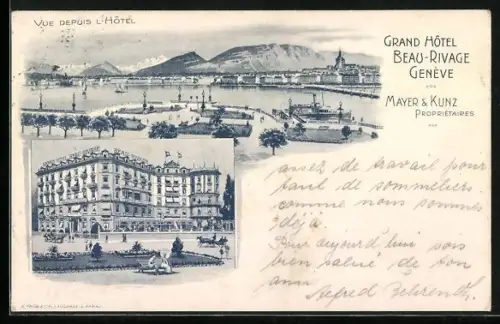 VUE DEPUIS L'HÔTEL
GRAND HÔTEL
BEAU-RIVAGE
GENÈVE
MAYER & KUNZ
PROPRIÉTAIRES
assez de travail pour
tant de sommeliers
comme nous sommes
déjà
Pour aujourd'hui sois
bien salué de ton
ami Alfred